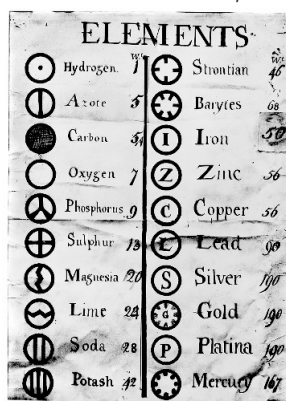 ELEMENTS
Wt.
Hydrogen. 1
Azote 5
Carbon 54
Oxygen 7
Phosphorus 9
Sulphur 13
Magnesia 20
Lime 24
Soda 28
Potash 42
Wt.
Strontian 46
Barytes 68
I Iron 50
Z Zinc 56
C Copper 56
L Lead 90
S Silver 190
G Gold 190
P Platina 190
Mercury 167